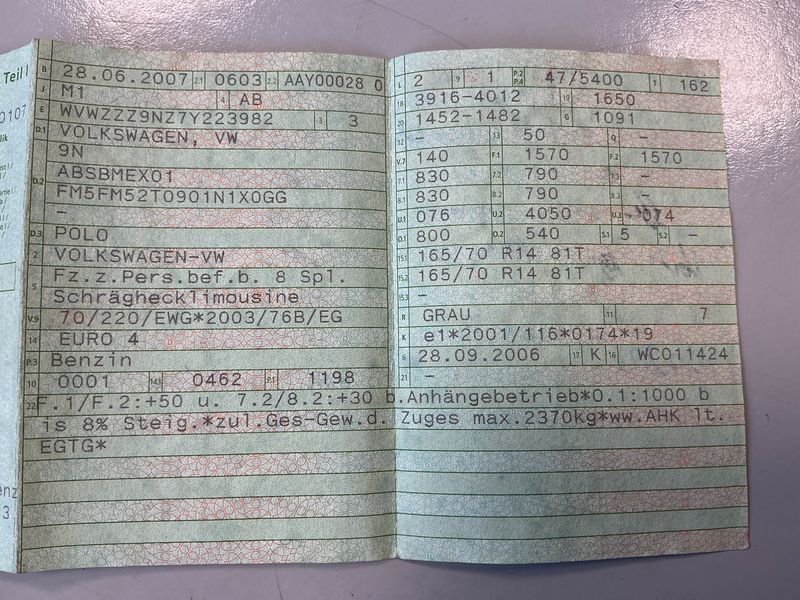 Teil I
B 28.06.2007 2.1 0603 2.2 AAY00028 0
J M1 4 AB
E WVWZZZ9NZ7Y223982 3 3
D.1 VOLKSWAGEN, VW
9N
D.2 ABSBMEX01
FM5FM52T0901N1X0GG
–
D.3 POLO
2 VOLKSWAGEN-VW
5 Fz.z.Pers.bef.b. 8 Spl.
Schräghecklimousine
V.9 70/220/EWG*2003/76B/EG
14 EURO 4
P.3 Benzin
10 0001 14.1 0462 P.1 1198
L 2 9 1 P.2 P.4 47/5400 T 162
18 3916-4012 19 1650
20 1452-1482 G 1091
12 – 13 50 Q –
V.7 140 F.1 1570 F.2 1570
7.1 830 7.2 790 7.3 –
8.1 830 8.2 790 8.3 –
U.1 076 U.2 4050 U.3 074
O.1 800 O.2 540 S.1 5 S.2 –
15.1 165/70 R14 81T
15.2 165/70 R14 81T
15.3 –
R GRAU 11 7
K e1*2001/116*0174*19
6 28.09.2006 17 K 16 WC011424
21 –
22 F.1/F.2:+50 u. 7.2/8.2:+30 b.Anhängebetrieb*O.1:1000 b
is 8% Steig.*zul.Ges-Gew.d. Zuges max.2370kg*ww.AHK lt.
EGTG*